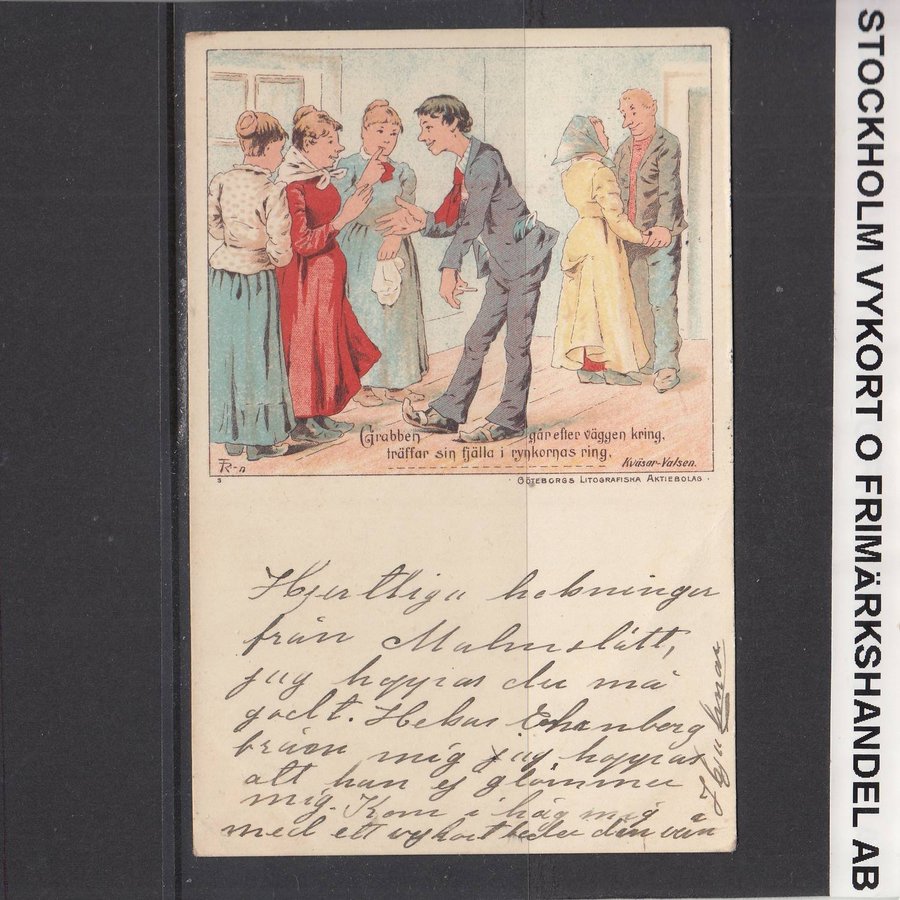 Grabben går efter väggen kring,
träffar sin fjälla i rynkornas ring.
Kväsar-Valsen.
GÖTEBORGS LITOGRAFISKA AKTIEBOLAG
Hjertliga helsningar
från Malmslätt,
jag hoppas du må
godt. Helsa Ehrenberg
från mig jag hoppas
att han ej glömmer
mig. Kom i håg mig
med ett vykort beder din vän
STOCKHOLM VYKORT O FRIMÄRKSHANDEL AB